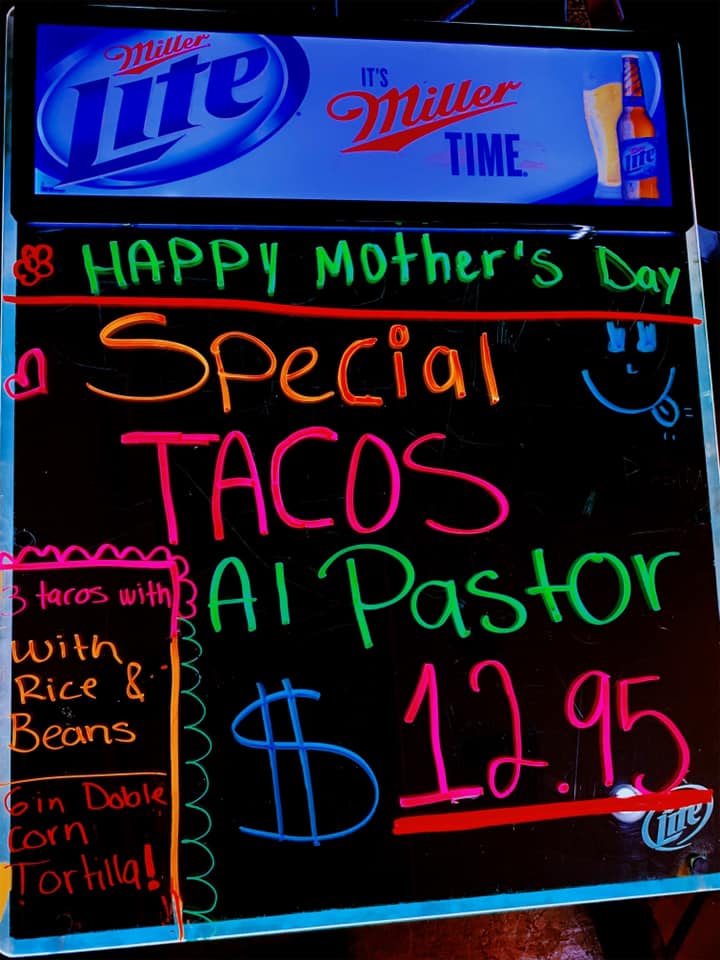 Miller
Lite
IT'S
Miller
TIME.
Lite
HAPPY Mother's Day
Special
TACOS
Al Pastor
$12.95
3 tacos with
with
Rice &
Beans
6in Doble
Corn
Tortilla!
Lite